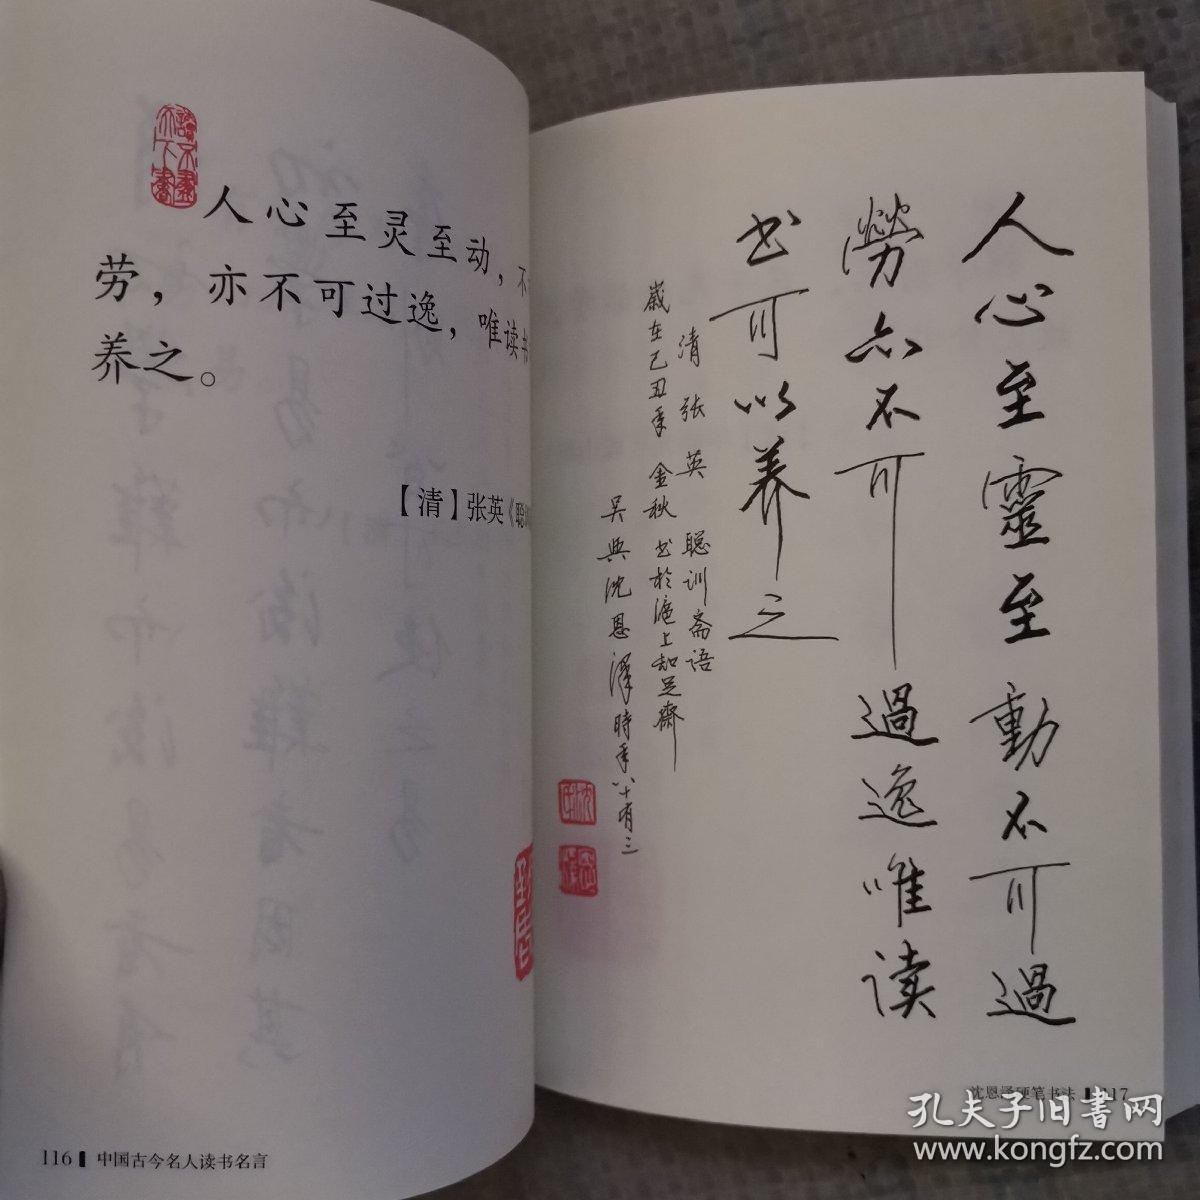 人心至灵至动，不
劳，亦不可过逸，唯读书
养之。
【清】张英《聪
116 中国古今名人读书名言
人心至靈至動不可過
勞亦不可過逸唯读
书可以养之
清张英聪训斋语
歲在己丑年金秋书於滬上知足齋
吴興沈恩澤時年八十有三
沈恩泽硬笔书法 117
孔夫子旧书网
www.kongfz.com